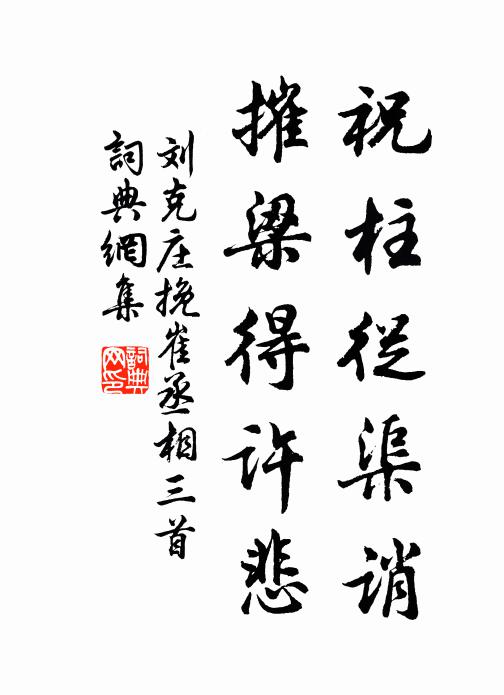 祝柱從渠誚
摧梁得許悲
刘克庄挽崔丞相三首
詞典網集
詞典
网印